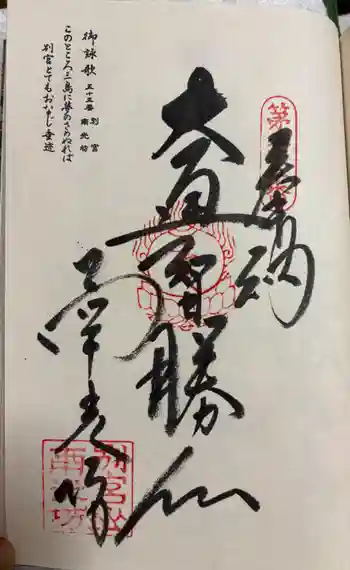 奉納
大通智勝仏
南光坊
御詠歌 五十五番 別宮 南光坊
このところ三島に夢のさめぬれば
別宮とてもおなじ垂迹
第
別宮山
南光坊